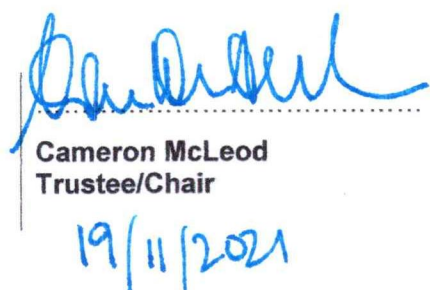 Cameron McLeod
Trustee/Chair
19/11/2021